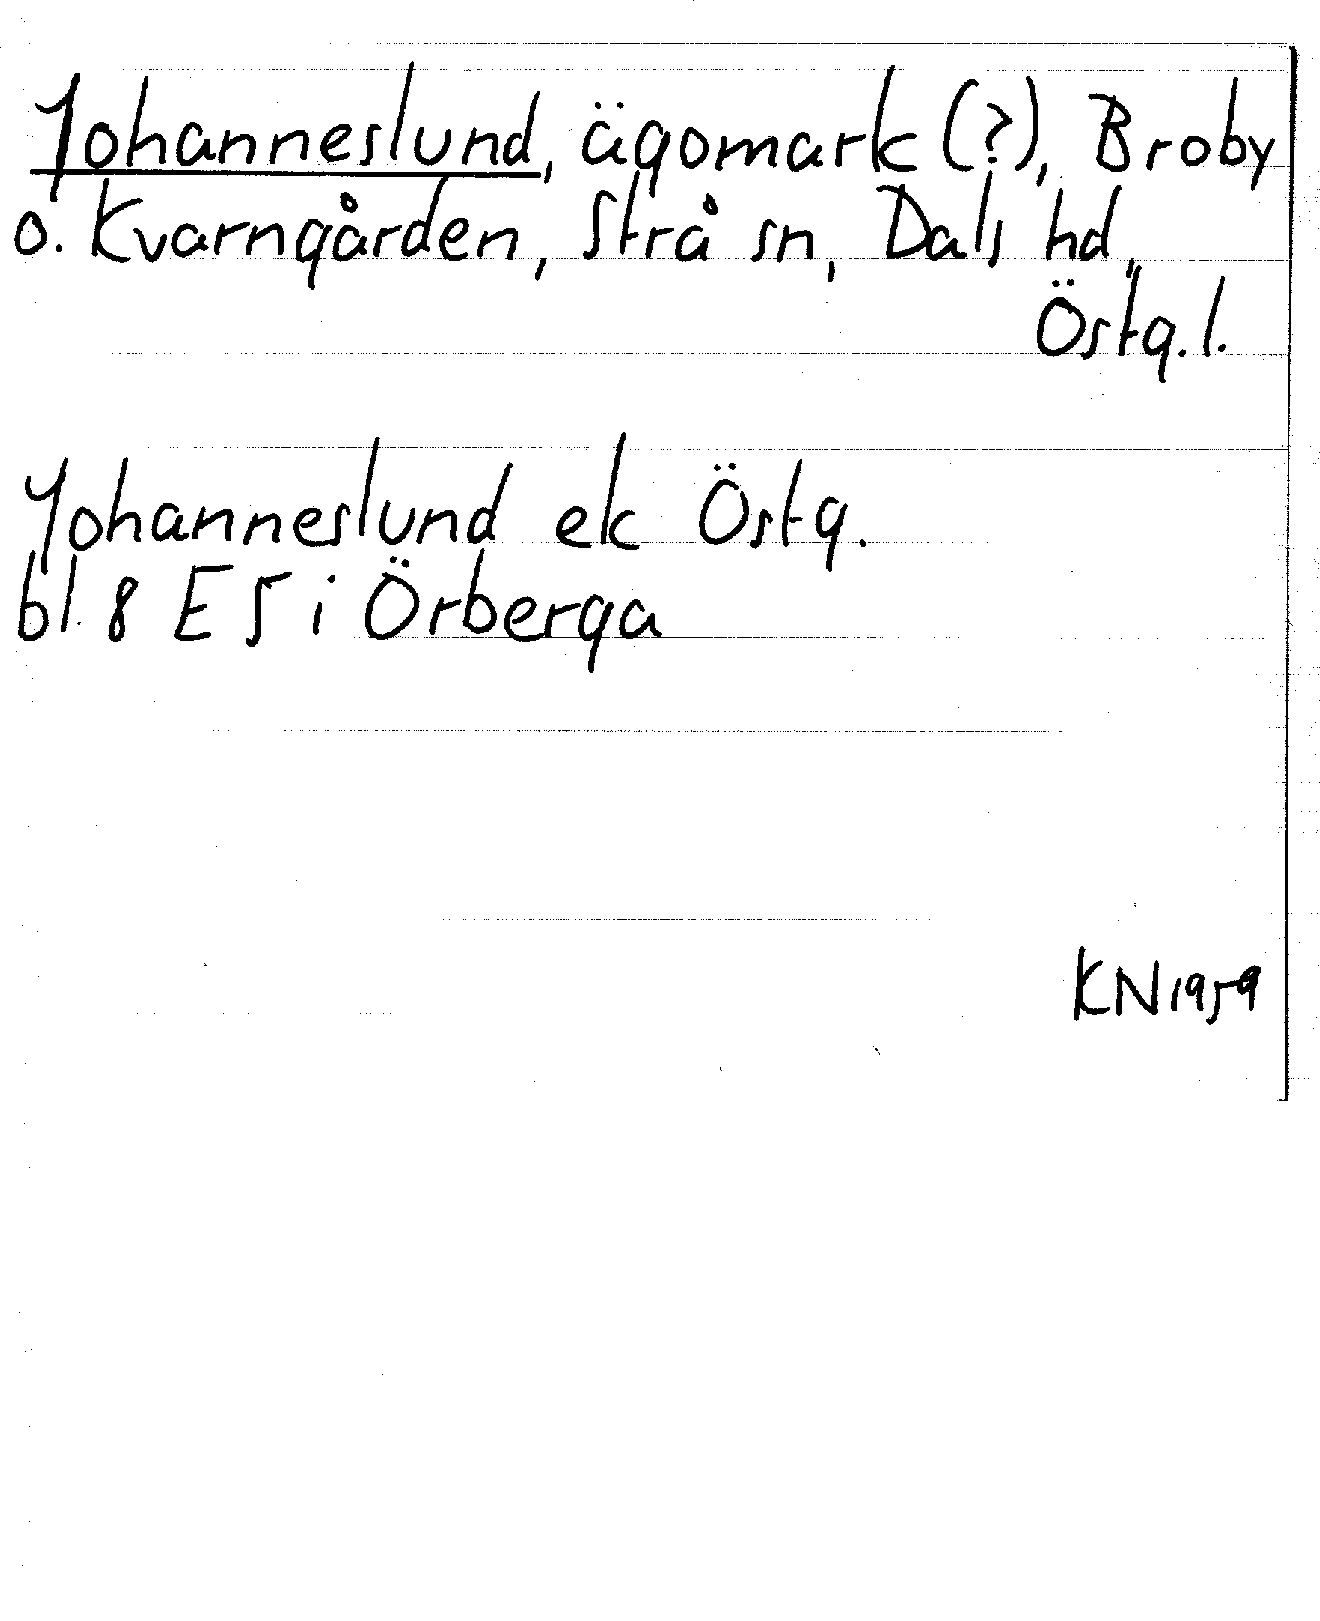 Johanneslund, ägomark (?), Broby
o. Kvarngården, Strå sn, Dals hd,
Östg. l.
Johanneslund ek Östg.
bl. 8 E5 i Örberga
KN 1959